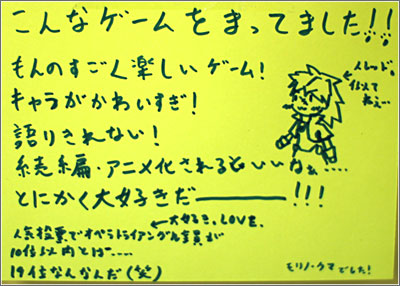 こんなゲームをまってました!!
もんのすごく楽しいゲーム!
キャラがかわいすぎ!
語りきれない!
続編・アニメ化されるといいなぁ……
とにかく大好きだ―――!!!
←イレッド。
似てねぇ…
←大好き、LOVE。
人気投票でオペラトライアングル全員が
10位以内とは……
19位なんかんだ(笑)
モリノ・クマでした!